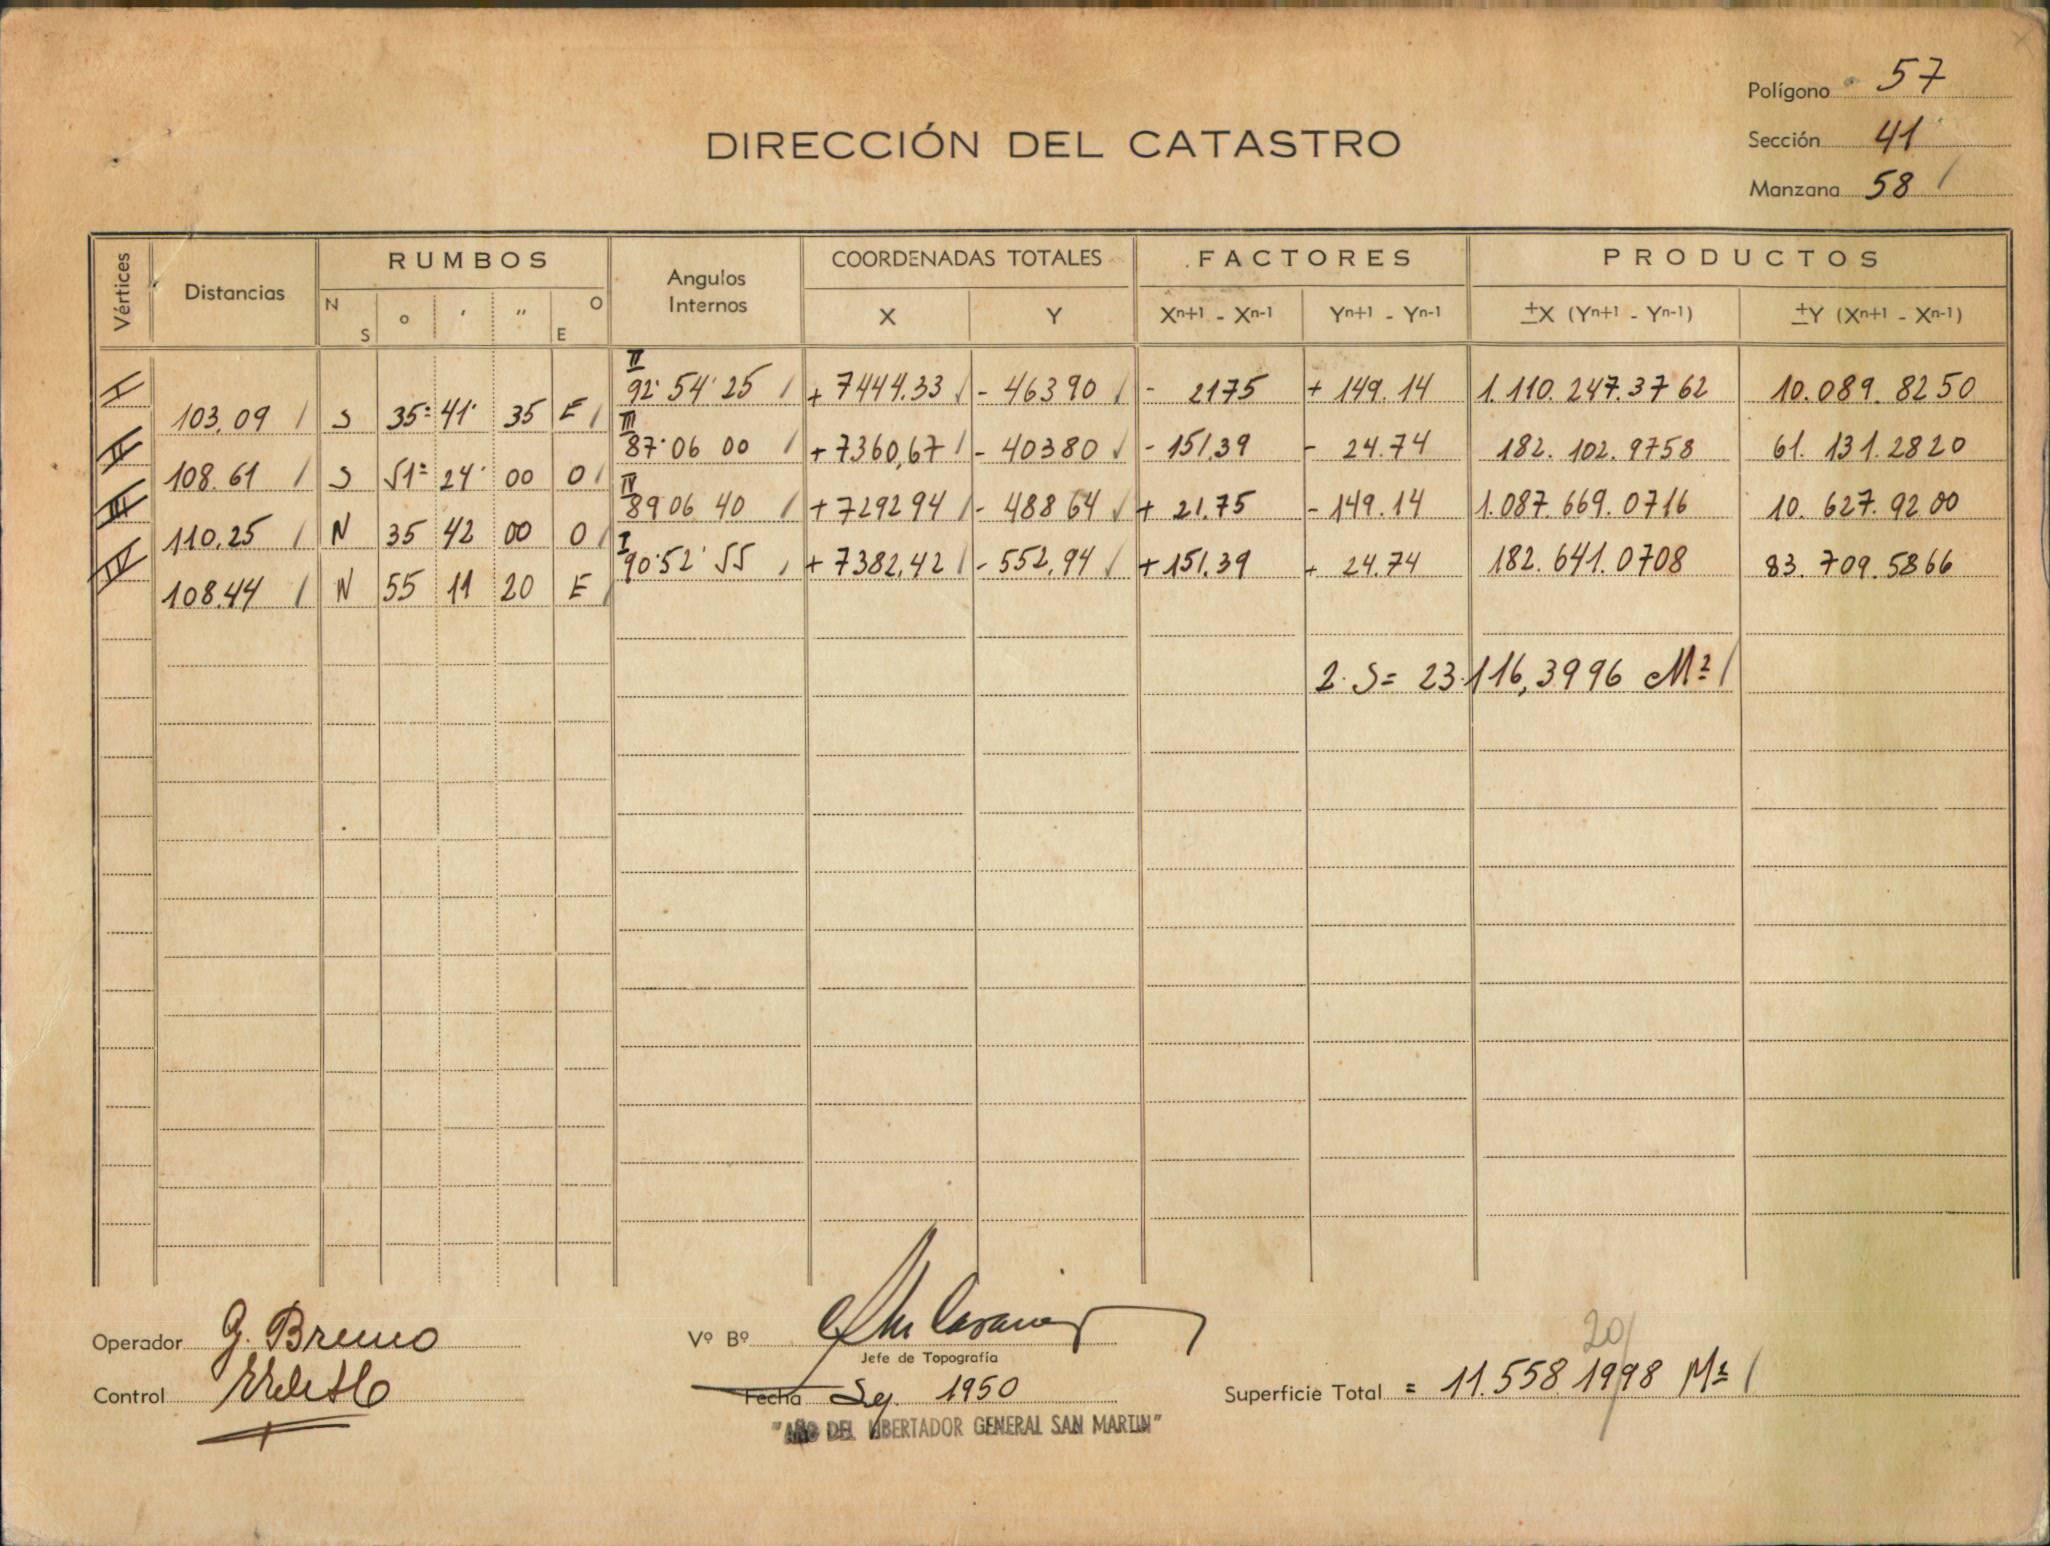 Polígono 57
DIRECCIÓN DEL CATASTRO
Sección 41
Manzana 58 /
Vértices Distancias RUMBOS Angulos Internos COORDENADAS TOTALES FACTORES PRODUCTOS
N S o ' '' O E X Y Xn+1 - Xn-1 Yn+1 - Yn-1 ±X (Yn+1 - Yn-1) ±Y (Xn+1 - Xn-1)
II
I 92° 54' 25 / + 7444.33 / - 46390 / - 2175 + 149.14 1.110.247.3762 10.089.8250
103.09 / S 35° 41' 35 E /
III
II 87° 06 00 / + 7360,67 / - 40380 / - 151.39 - 24.74 182.102.9758 61.131.2820
108.61 / S 51° 24' 00 O /
IV
III 89 06 40 / + 729294 / - 48864 / + 21.75 - 149.14 1.087.669.0716 10.627.9200
110.25 / N 35 42 00 O /
I
IV 90° 52' 55 / + 7382,42 / - 552,94 / + 151.39 + 24.74 182.641.0708 83.709.5866
108.44 / N 55 11 20 E /
2.S = 23.116,3996 M² /
Operador G. Bruno
Vº Bº
Jefe de Topografía
20/
Control
Fecha 1950
Superficie Total = 11.558.1998 M² /
"AÑO DEL LIBERTADOR GENERAL SAN MARTIN"